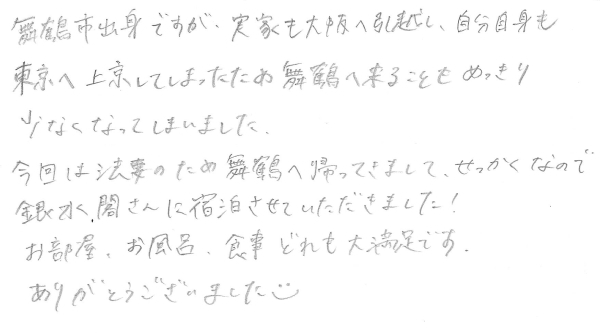 舞鶴市出身ですが、実家も大阪へ引越し、自分自身も
東京へ上京してしまったため舞鶴へ来ることもめっきり
少なくなってしまいました.
今回は法要のため舞鶴へ帰ってきまして、せっかくなので
銀水閣さんに宿泊させていただきました!
お部屋、お風呂、食事どれも大満足です.
ありがとうございました